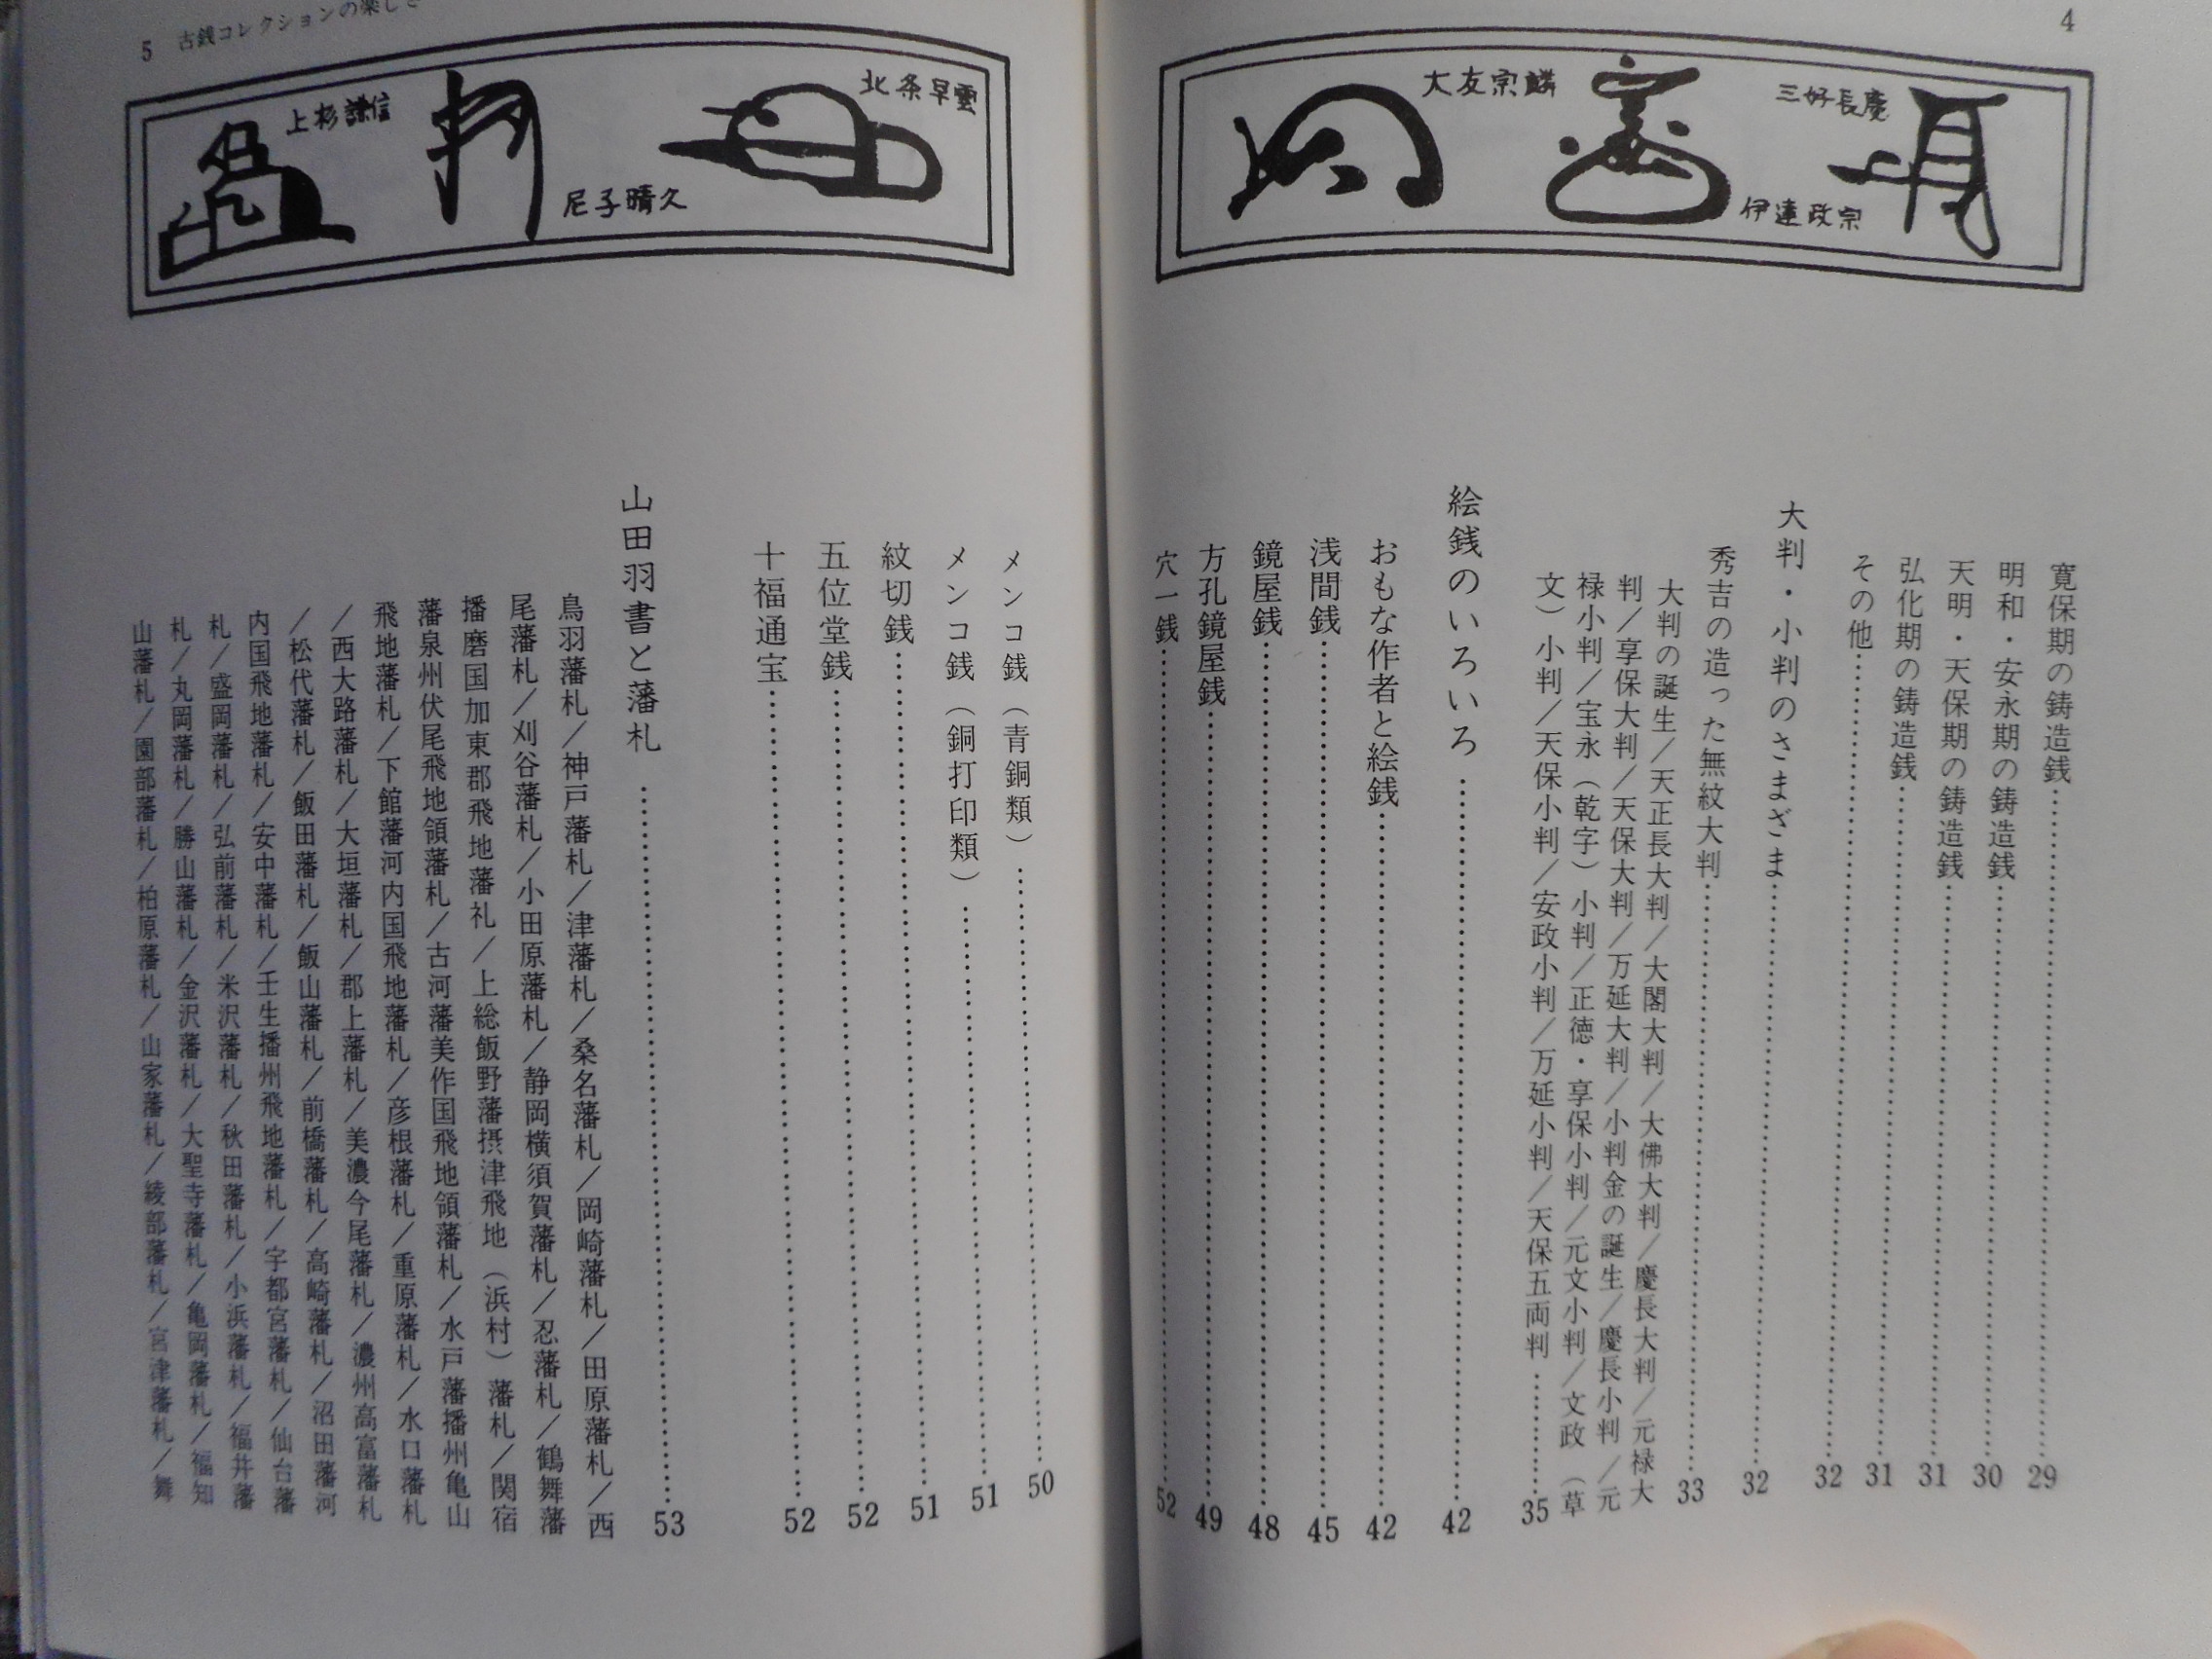 4
三好長慶
伊達政宗
大友宗麟
寛保期の鋳造銭……29
明和・安永期の鋳造銭……30
天明・天保期の鋳造銭……31
弘化期の鋳造銭……31
その他……32
大判・小判のさまざま……32
秀吉の造った無紋大判……33
大判の誕生／天正長大判／大閤大判／大佛大判／慶長大判／元禄大
判／享保大判／天保大判／万延大判／小判金の誕生／慶長小判／元
禄小判／宝永（乾字）小判／正徳・享保小判／元文小判／文政（草
文）小判／天保小判／安政小判／万延小判／天保五両判……35
絵銭のいろいろ……42
おもな作者と絵銭……42
浅間銭……45
鏡屋銭……48
方孔鏡屋銭……49
穴一銭……52
5 古銭コレクションの楽しさ
北条早雲
尼子晴久
上杉謙信
メンコ銭（青銅類）……50
メンコ銭（銅打印類）……51
紋切銭……51
五位堂銭……52
十福通宝……52
山田羽書と藩札……53
鳥羽藩札／神戸藩札／津藩札／桑名藩札／岡崎藩札／田原藩札／西
尾藩札／刈谷藩札／小田原藩札／静岡横須賀藩札／忍藩札／鶴舞藩
播磨国加東郡飛地藩礼／上総飯野藩摂津飛地（浜村）藩札／関宿
藩泉州伏尾飛地領藩札／古河藩美作国飛地領藩札／水戸藩播州亀山
飛地藩札／下館藩河内国飛地藩札／彦根藩札／重原藩札／水口藩札
／西大路藩札／大垣藩札／郡上藩札／美濃今尾藩札／濃州高富藩札
／松代藩札／飯田藩札／飯山藩札／前橋藩札／高崎藩札／沼田藩河
内国飛地藩札／安中藩札／壬生播州飛地藩札／宇都宮藩札／仙台藩
札／盛岡藩札／弘前藩札／米沢藩札／秋田藩札／小浜藩札／福井藩
札／丸岡藩札／勝山藩札／金沢藩札／大聖寺藩札／亀岡藩札／福知
山藩札／園部藩札／柏原藩札／山家藩札／綾部藩札／宮津藩札／舞